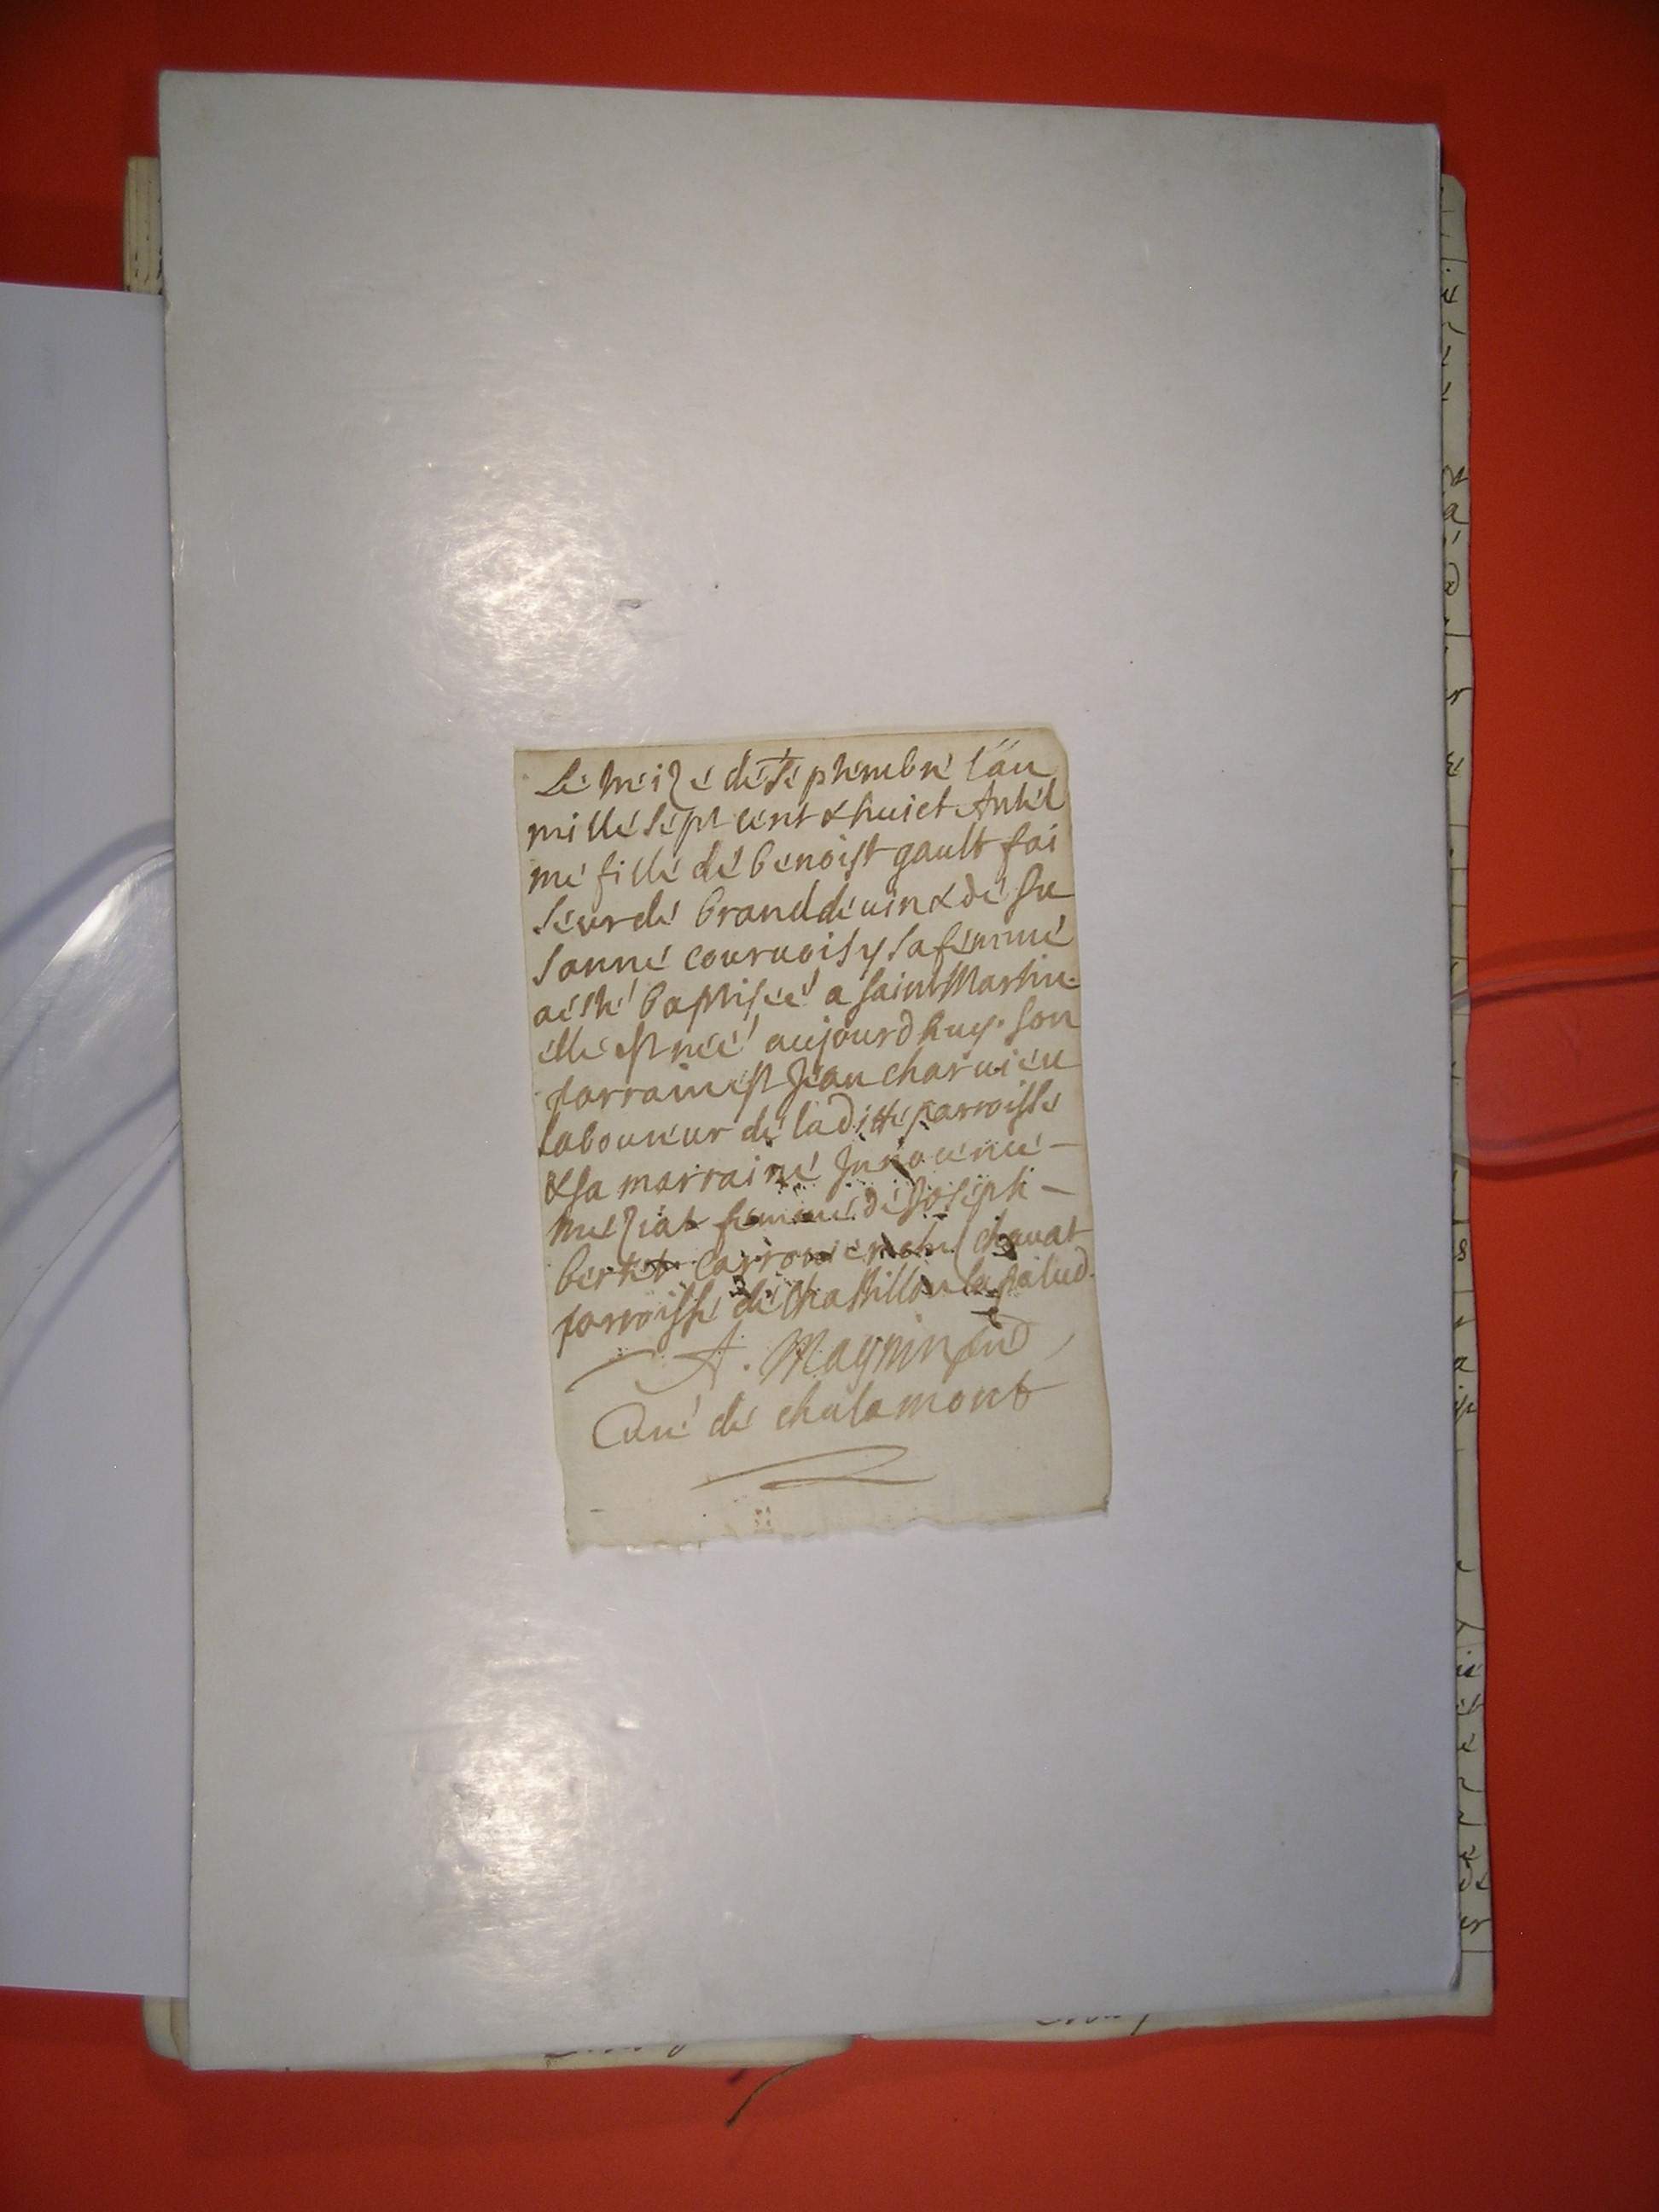 Le treize de Septembre l'an
mille sept cent & huict Antel
me fille de benoist gault fai
seur de brand de vin & de Su
sanne couruoisy sa femme
a esté baptisée a saint Martin.
elle est née aujourdhuy. son
parrain est Jean charuieu
laboureur de laditte parroisse
& sa marraine Innocence -
meziat femme de Joseph -
bertet chauat
parroisse de Chastillon la palud.
A. Magnin
Curé de chalamont